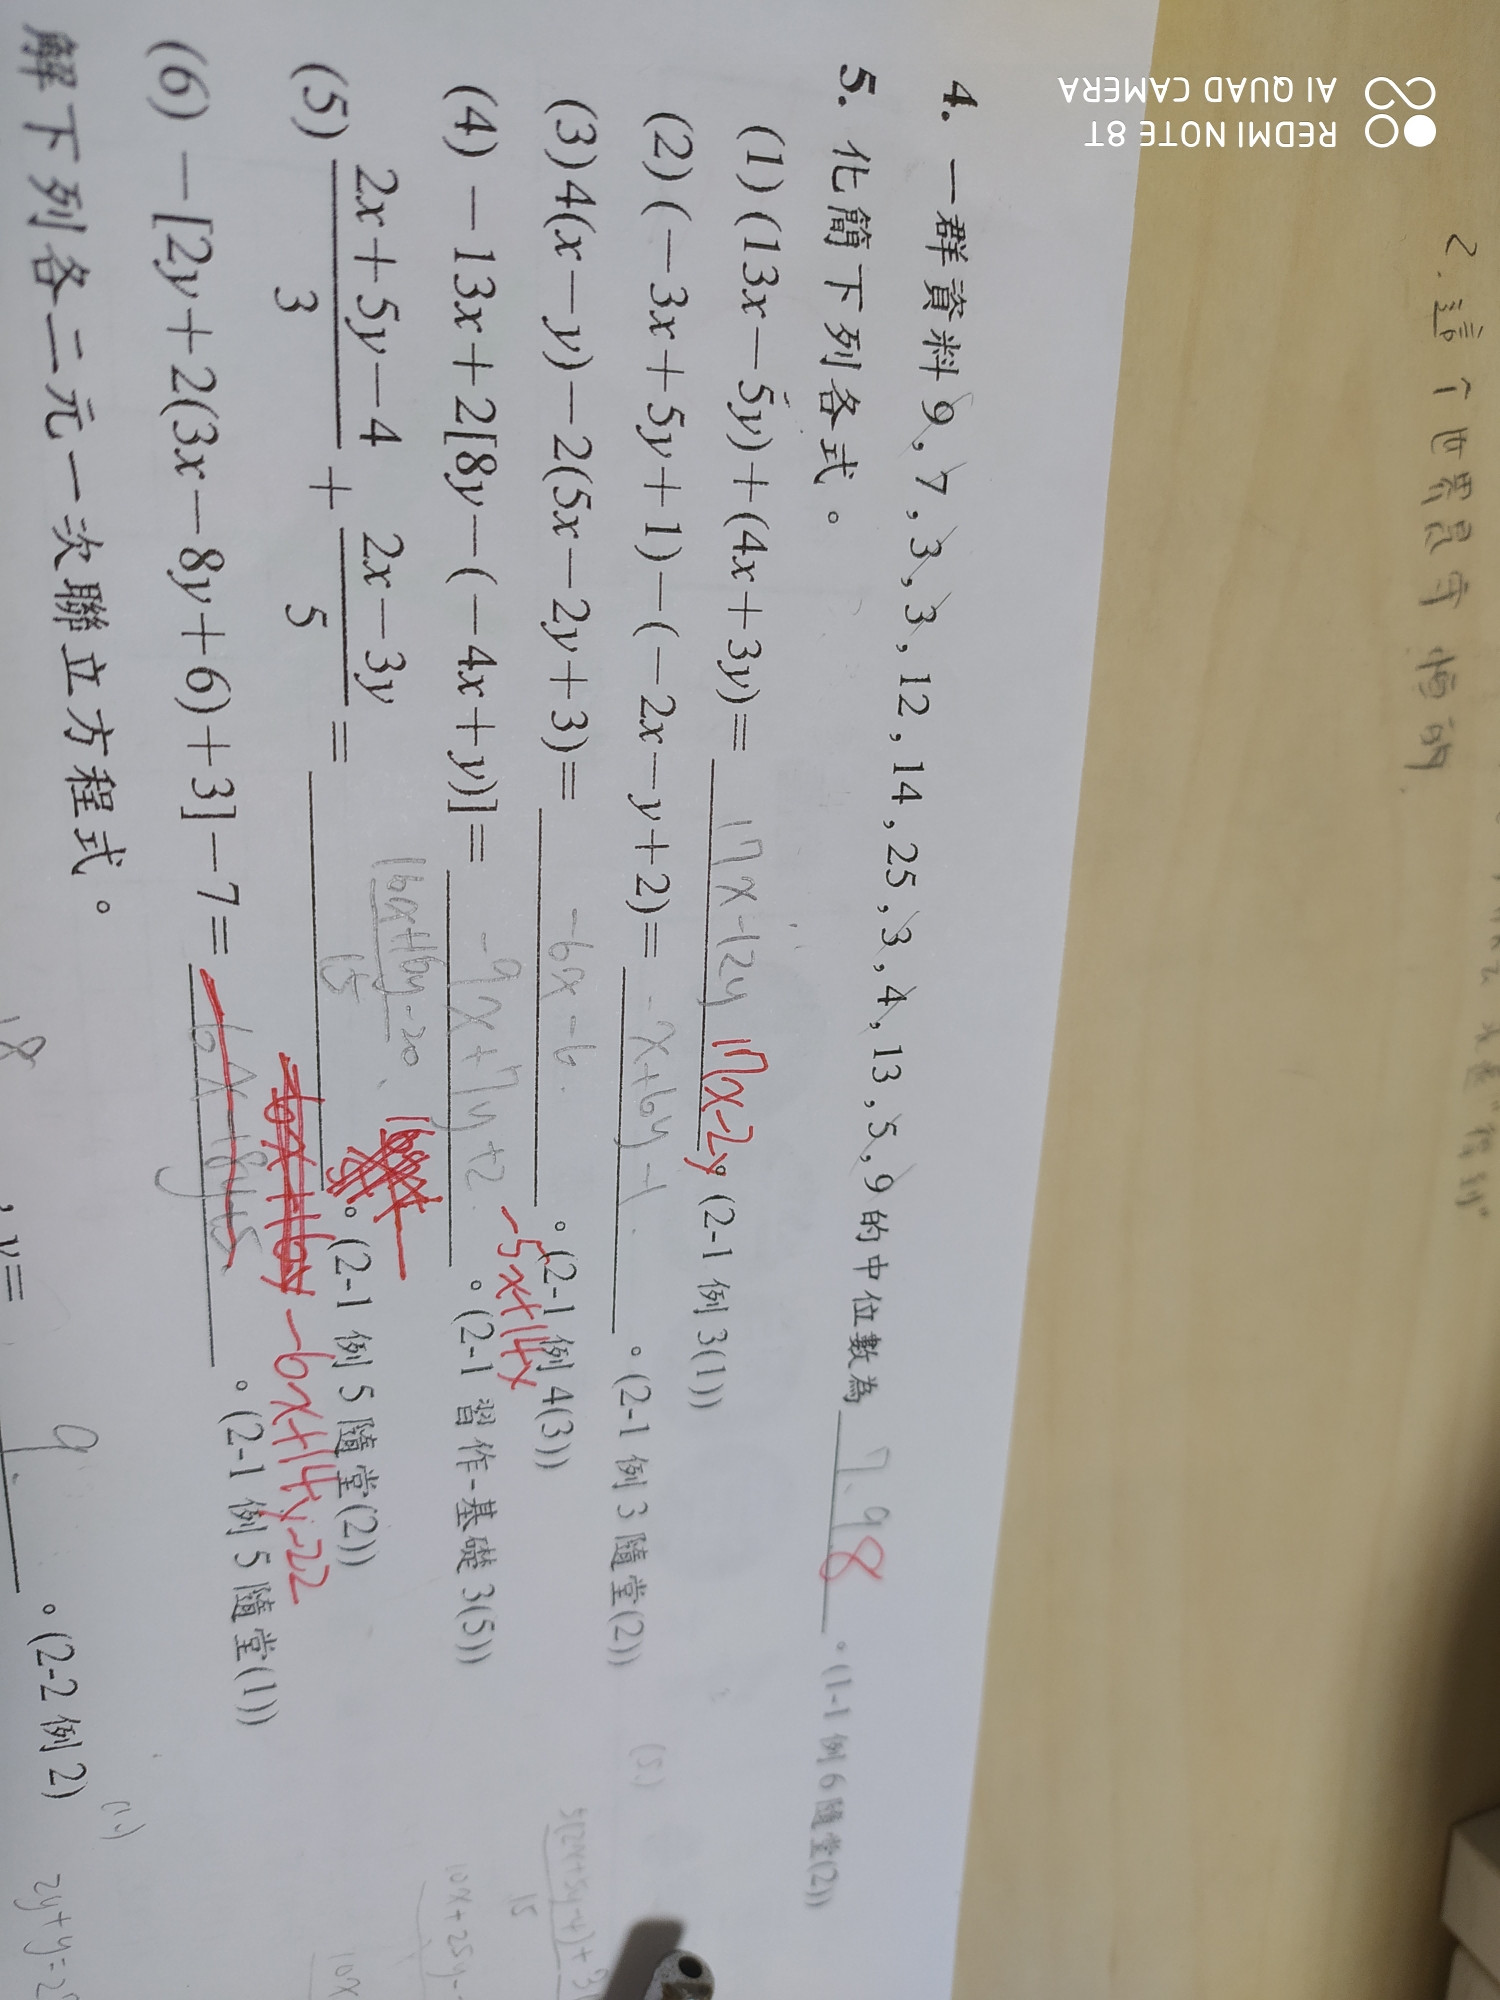 2.這个世界是守恒的
4. 一群資料9,7,3,3,12,14,25,3,4,13,5,9的中位數為 7.9 8 。(1-1 例6隨堂(2))
5. 化簡下列各式。
(1) (13x－5y)＋(4x＋3y)＝ 17x-12y 17x-2y 。(2-1 例3(1))
(2) (－3x＋5y＋1)－(－2x－y＋2)＝ -x+6y-1 。(2-1 例3隨堂(2))
(3) 4(x－y)－2(5x－2y＋3)＝ -6x-6 。(2-1 例4(3))
(4) －13x＋2[8y－(－4x＋y)]＝ -9x+7y+2 -5x+14x 。(2-1 習作-基礎3(5))
(5) (2x＋5y－4)/3＋(2x－3y)/5＝ (16x+16y-20)/15 。(2-1 例5隨堂(2))
(6) －[2y＋2(3x－8y＋6)＋3]－7＝ -6x+14y-22 。(2-1 例5隨堂(1))
解下列各二元一次聯立方程式。
18 , y= 9 。(2-2 例2)
REDMI NOTE 8T
AI QUAD CAMERA